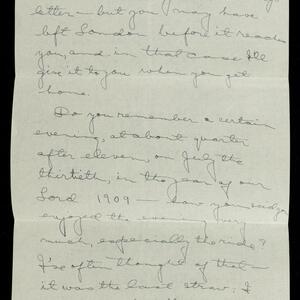 letter — but you may have
left London before it reaches
you, and in that case I'll
give it to you when you get
home.
Do you remember a certain
evening, at about quarter
after eleven, on July the
thirtieth, in the year of our
Lord 1909 — how you said you
enjoyed the evening very
much, especially the ride?
I've often thought of that —
it was the last straw; I